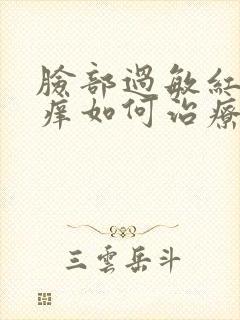 臉部過敏紅
癢如何治療
三雲岳斗